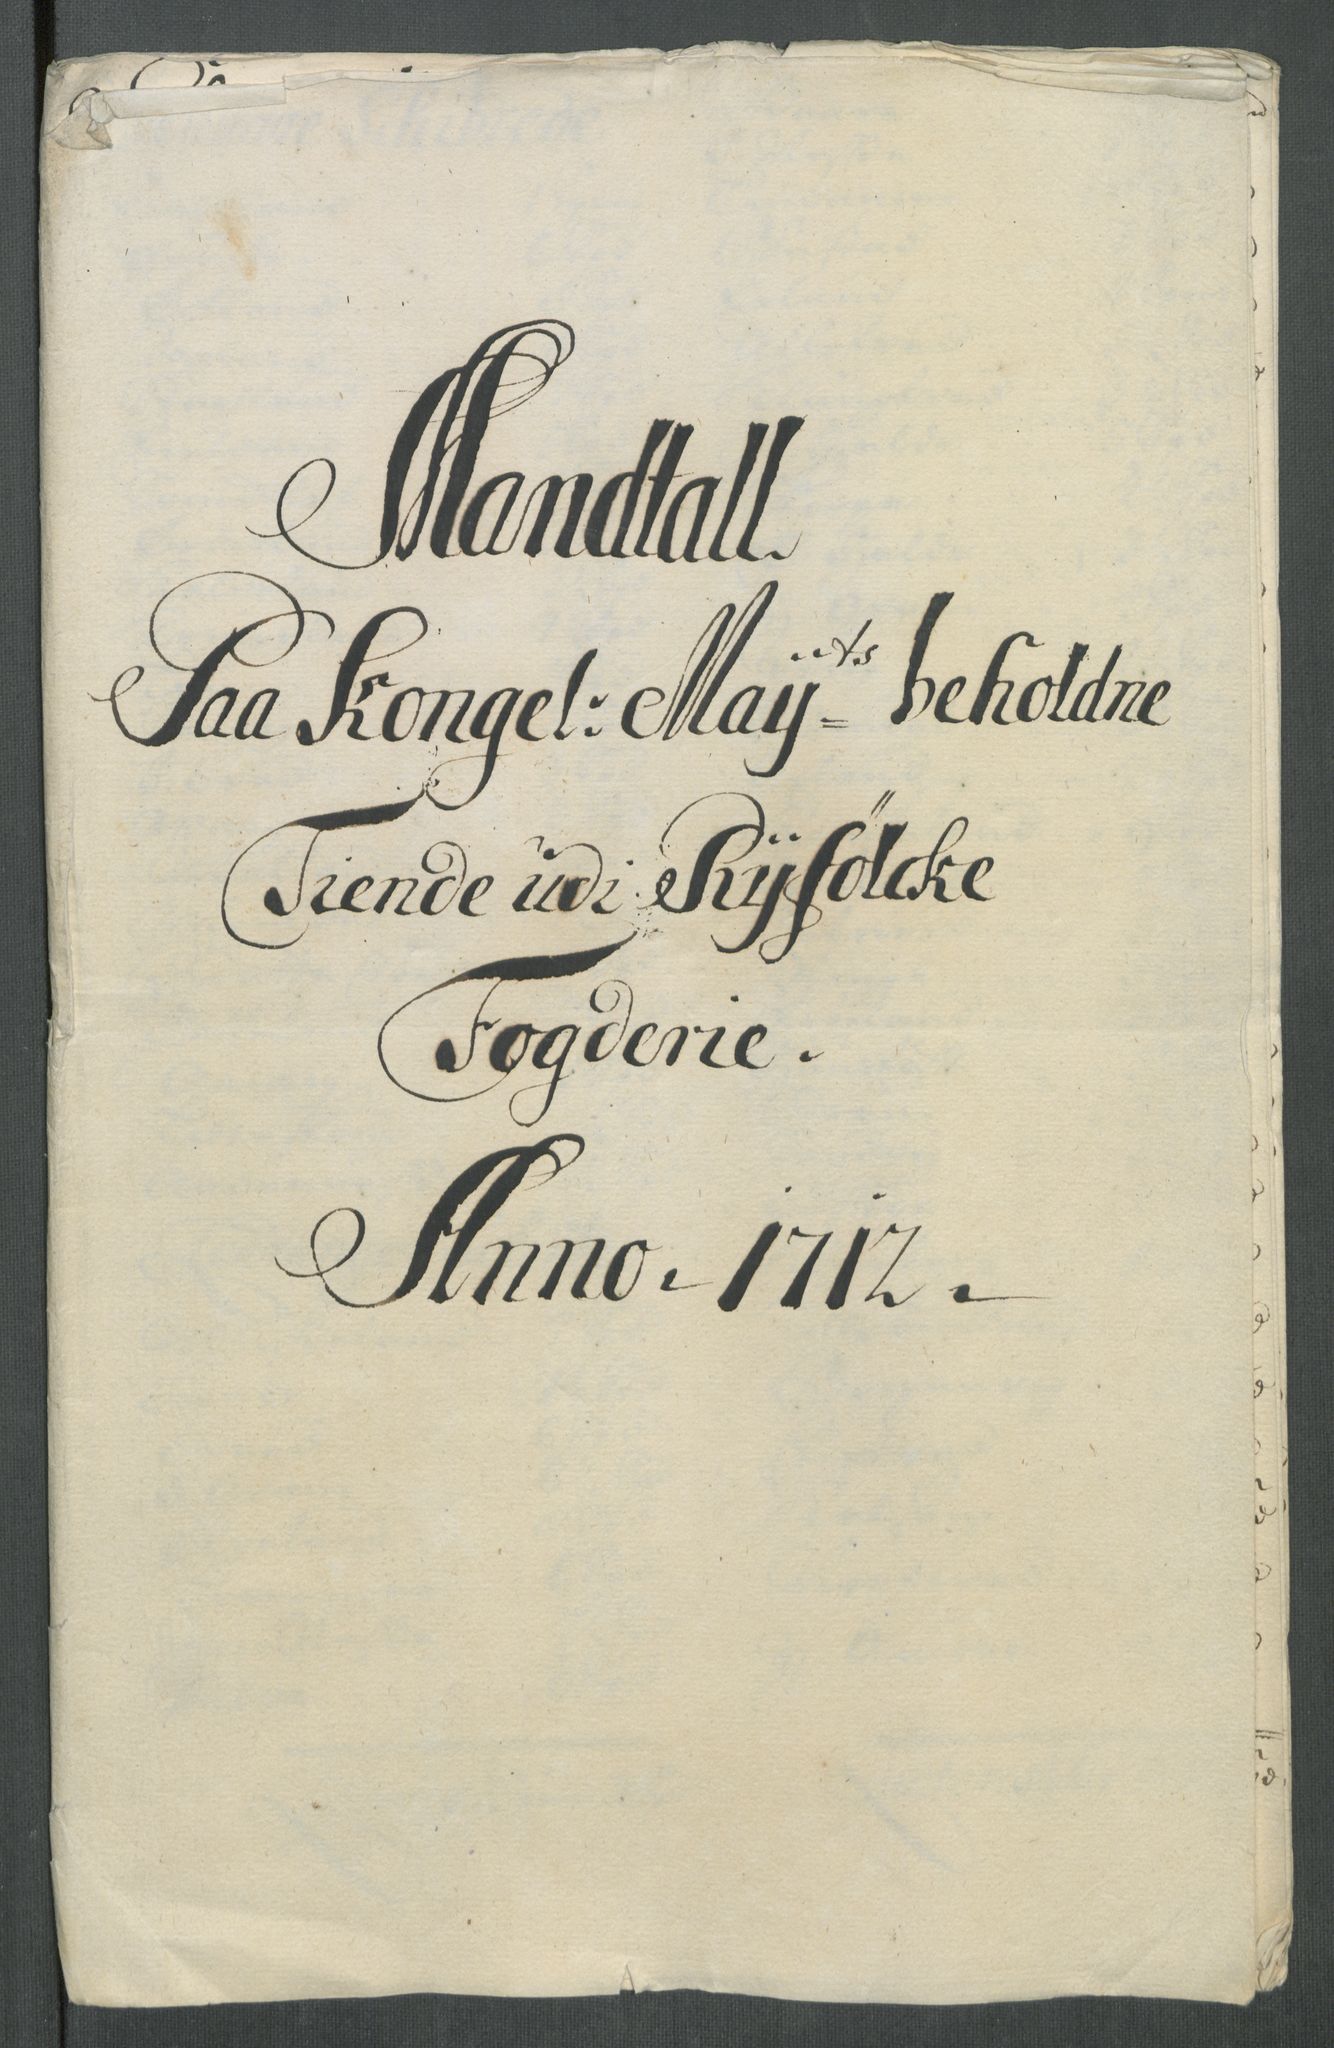 Mandtall.
Paa Kongel: Maÿ:ts beholdne
Tiende üdi Rÿfölcke
Fogderie.
Anno. 1712.